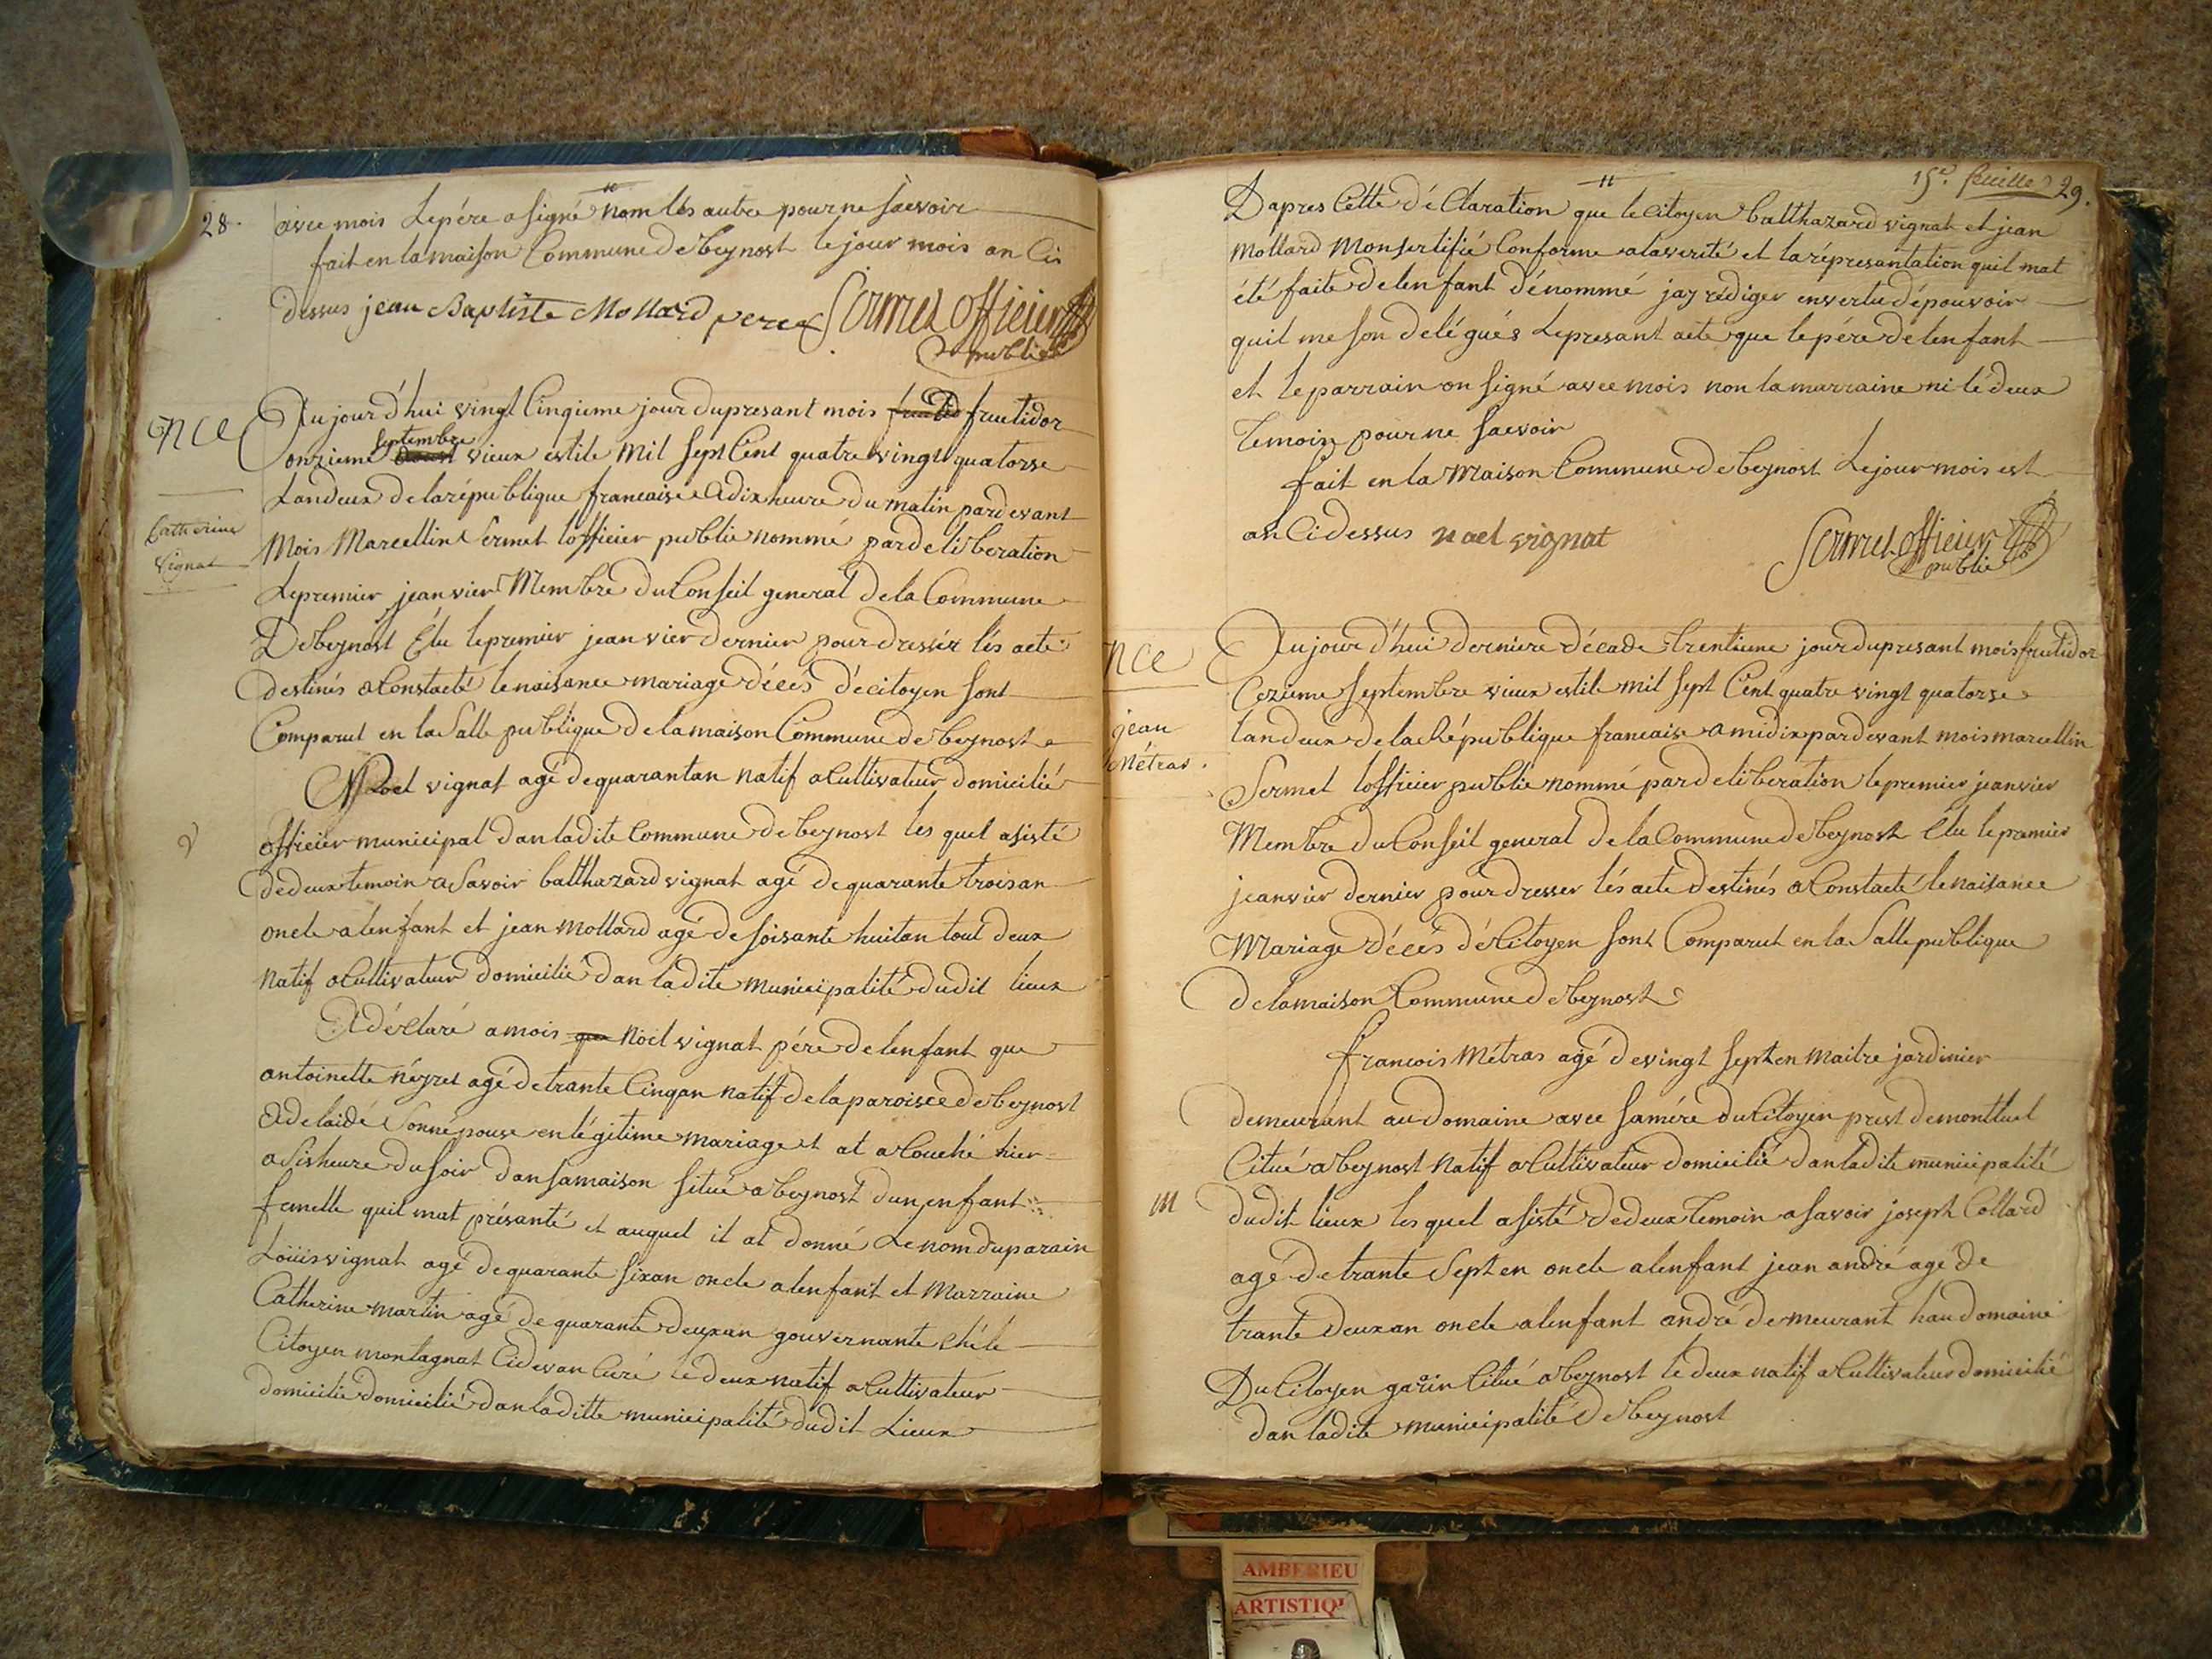 28.
avec mois Lepére a signé nom lés autre pour ne sàevoir
fait en la maison Commune De beynost le jour mois an Ci
dessus jean Baptiste Mollard pere Sermet officier
public
nce
Catherine
vignat
Aujourd'hui vingt Cinqieme jour du presant mois fructidor
onzieme septembre vieux estile mil sept Cent quatre vingt quatorse
Landeux de la république francaise a dix heure du matin pardevant
Mois Marcellin Sermet lofficier public nommé par deliberation
Lepremier jeanvier Membre du Conseil general De la Commune
De beynost Élu le premier jeanvier dernier pour dressér lés acte
destinés a Constaeté lenaisance mariage décés d'écitoyen sont
Comparut en la Salle publique De la maison Commune de beynost
Noel vignat agé de quarantan natif a Cultivateur domicilié
officier municipal dan ladite Commune de beynost les quel asisté
de deux temoin a Savoir balthazard vignat agé de quarante trois an
oncle a lenfant et jean mollard agé de soisante huitan tout deux
natif a Cultivateur domicilié dan ladite municipalité dudit lieux
A déclaré a mois que Noél vignat pére de lenfant que
antoinette néyret agé de trante Cinqan natif de la paroisce de beynost
Adelaide Son népouse en légitime mariage et at a Couché hier
a Sisheure du soir dan sa maison situé a beynost dun enfant
femelle quil mat présanté et auquel il at donné Le nom du parain
Loüis vignat agé de quarante sixan oncle a lenfant et Marraine
Catherine martin agé de quarante deuxan gouvernante ché le
Citoyen montagnat Cidevan Curé lé deux natif a Cultivateur
domicilié domicilié dan laditte municipalité dudit Lieux
15e. feuille 29.
D'apres Cette déClaration que le Citoyen balthazard vignat et jean
Mollard Monsertifié Conforme a laverité et la répresantation quil mat
été faite de lenfant dénommé jay rédiger envertu dépouvoir
quil me son delégués Lepresant acte que le pére de lenfant
et le parrain on signé avec mois non la marraine ni le deux
Temoin pour ne saevoir
fait en la Maison Commune de beynost Le jour mois est
an Cidessus nael vignat Sermet officier
public
nce
jean
Métras.
Aujourd'hui derniere décade trentieme jour du presant mois frutidor
Cezieme septembre vieux estile mil sept Cent quatre vingt quatorse
landeux de la République francaise a midix pardevant mois marcellin
Sermet lofficier public nommé par deliberation le premier jeanvier
Membre du Conseil general de la Commune de beynost Élu le premier
jeanvier dernier pour dresser lés acte destinés a Constaeté lenaisance
Mariage décés déCitoyen sont Comparut en la Salle publique
de la maison Commune de beynost
francois Métras agé de vingt septen maitre jardinier
demeurant au domaine avec saméré du Citoyen prest de montluel
Citué a beynost natif a Cultivateur domicilié dan ladite municipalité
m
dudit lieux les quel asisté de deux Temoin a savoir joseph Collard
agé de trante Septen oncle a lenfant jean andré agé de
trante deuxan oncle a lenfant andré demeurant hau domaine
Du Citoyen garin Citué a beynost le deux natif a Cultivateur domicilié
dan ladite municipalité De beynost
AMBERIEU
ARTISTIQ